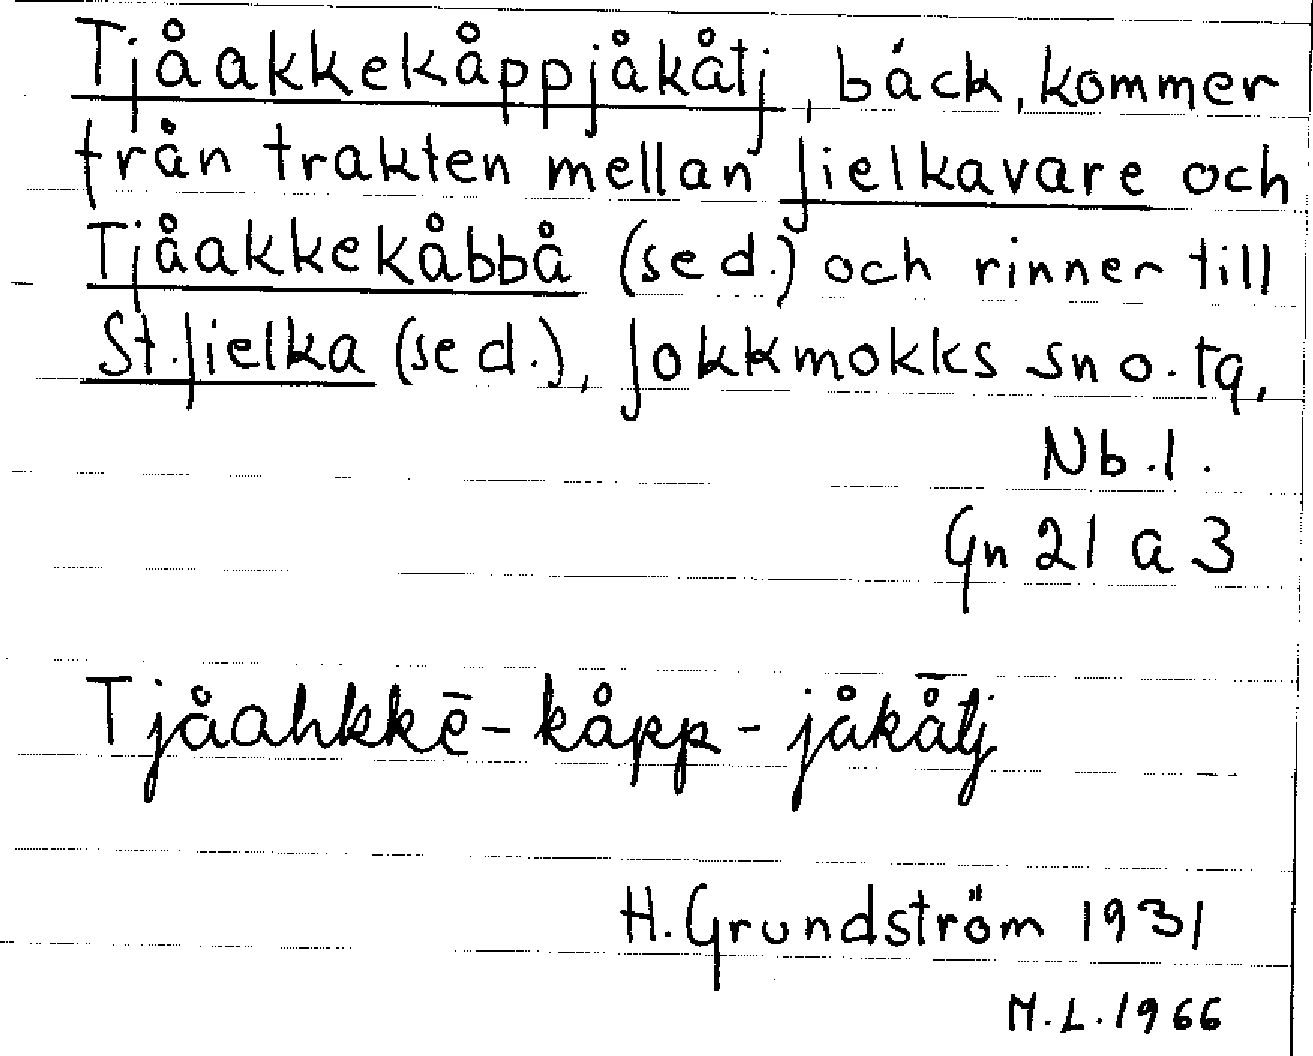 Tjåakkekåppjåkåtj, bäck, kommer
från trakten mellan Jielkavare och
Tjåakkekåbbå (se d.) och rinner till
St. Jielka (se d.), Jokkmokks sn o. tg,
Nb. l.
Gn 21 a 3
Tjåahkkē-kåpp-jåkå̄tj
H. Grundström 1931
M.L. 1966